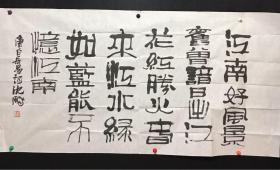 江南好風景
舊曾諳日出江
花紅勝火春
來江水緑
如藍能不
憶江南
唐白居易詞